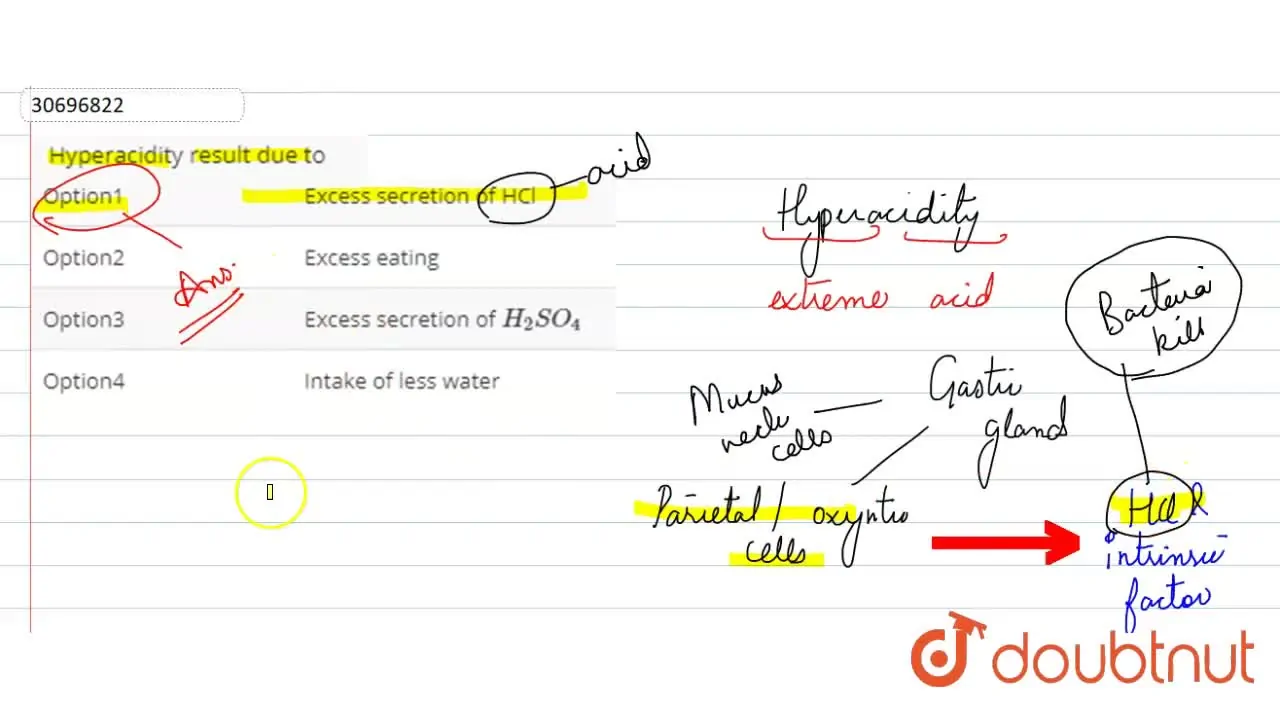 30696822
Hyperacidity result due to
Option1 Excess secretion of HCl
acid
Option2 Excess eating
Ans.
Option3 Excess secretion of H₂SO₄
Option4 Intake of less water
Hyperacidity
extreme acid
Bacteria
kill
Gastric
gland
Mucus
neck
cells
Parietal / oxyntic
cells
HCl &
intrinsic
factor
doubtnut